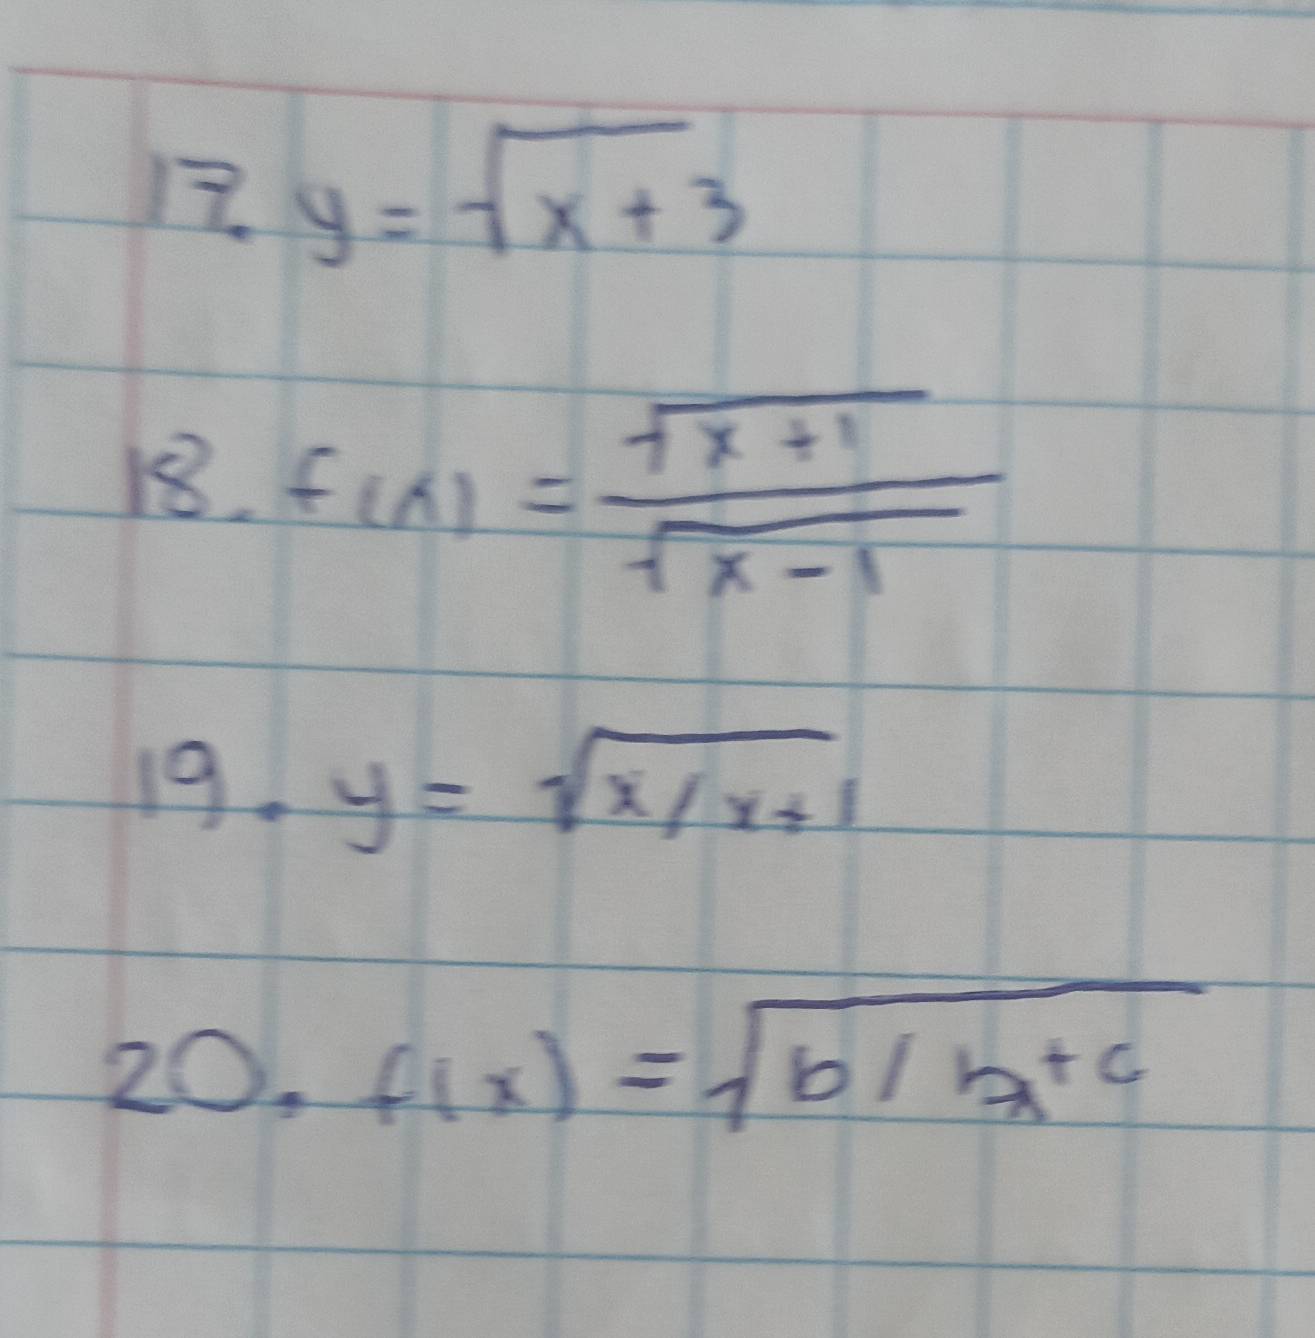 17. y = √x + 3
18. f(x) = √x + 1 / √x - 1
19. y = √x / x + 1
20. f(x) = √b / bx + c